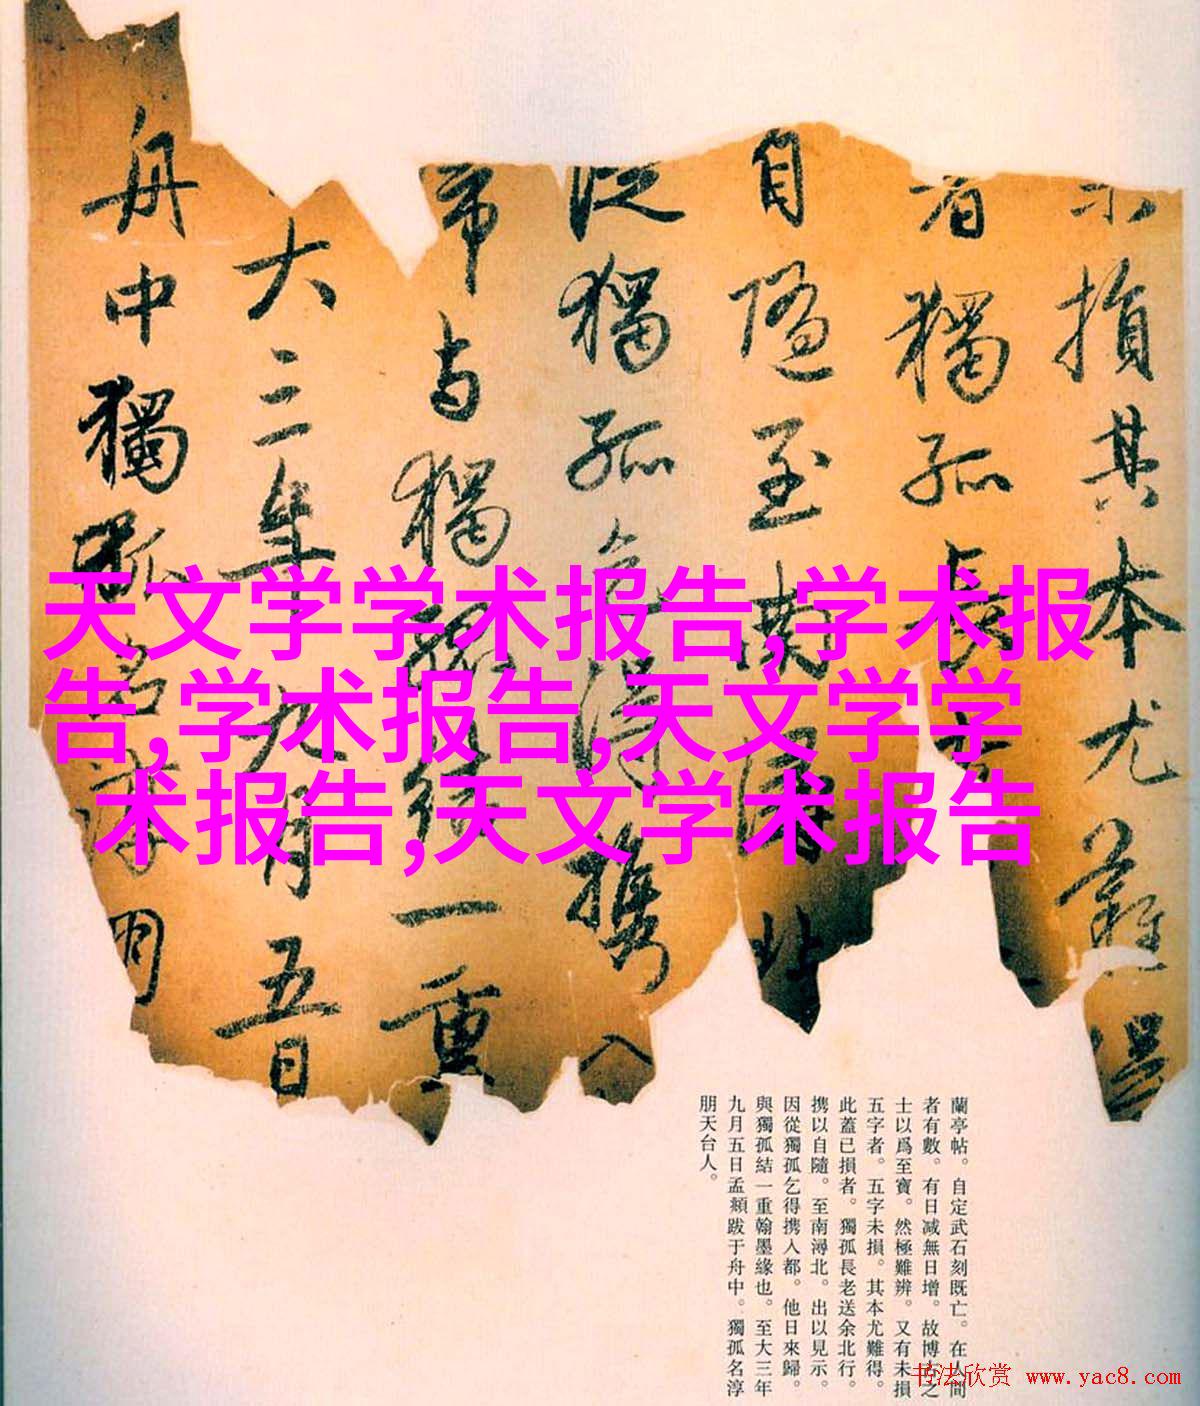 未損其本尤難得
者獨孤長老
自隨至南潯北
從獨孤乞得攜入
帝与獨孤結一重
大三年九月五日
舟中獨孤名淳朋
天文学学术报告,学术报
告,学术报告,天文学学
术报告,天文学术报告
蘭亭帖。自定武石刻既亡。在人間
者有數。有日减無日增。故博古之
士以爲至寶。然極難辨。又有未損
五字者。五字未損。其本尤難得。
此蓋已損者。獨孤長老送余北行。
携以自隨。至南潯北。出以見示。
因從獨孤乞得携入都。他日來歸。
與獨孤結一重翰墨緣也。至大三年
九月五日孟頫跋于舟中。獨孤名淳
朋天台人。
书法欣赏 www.yac8.com